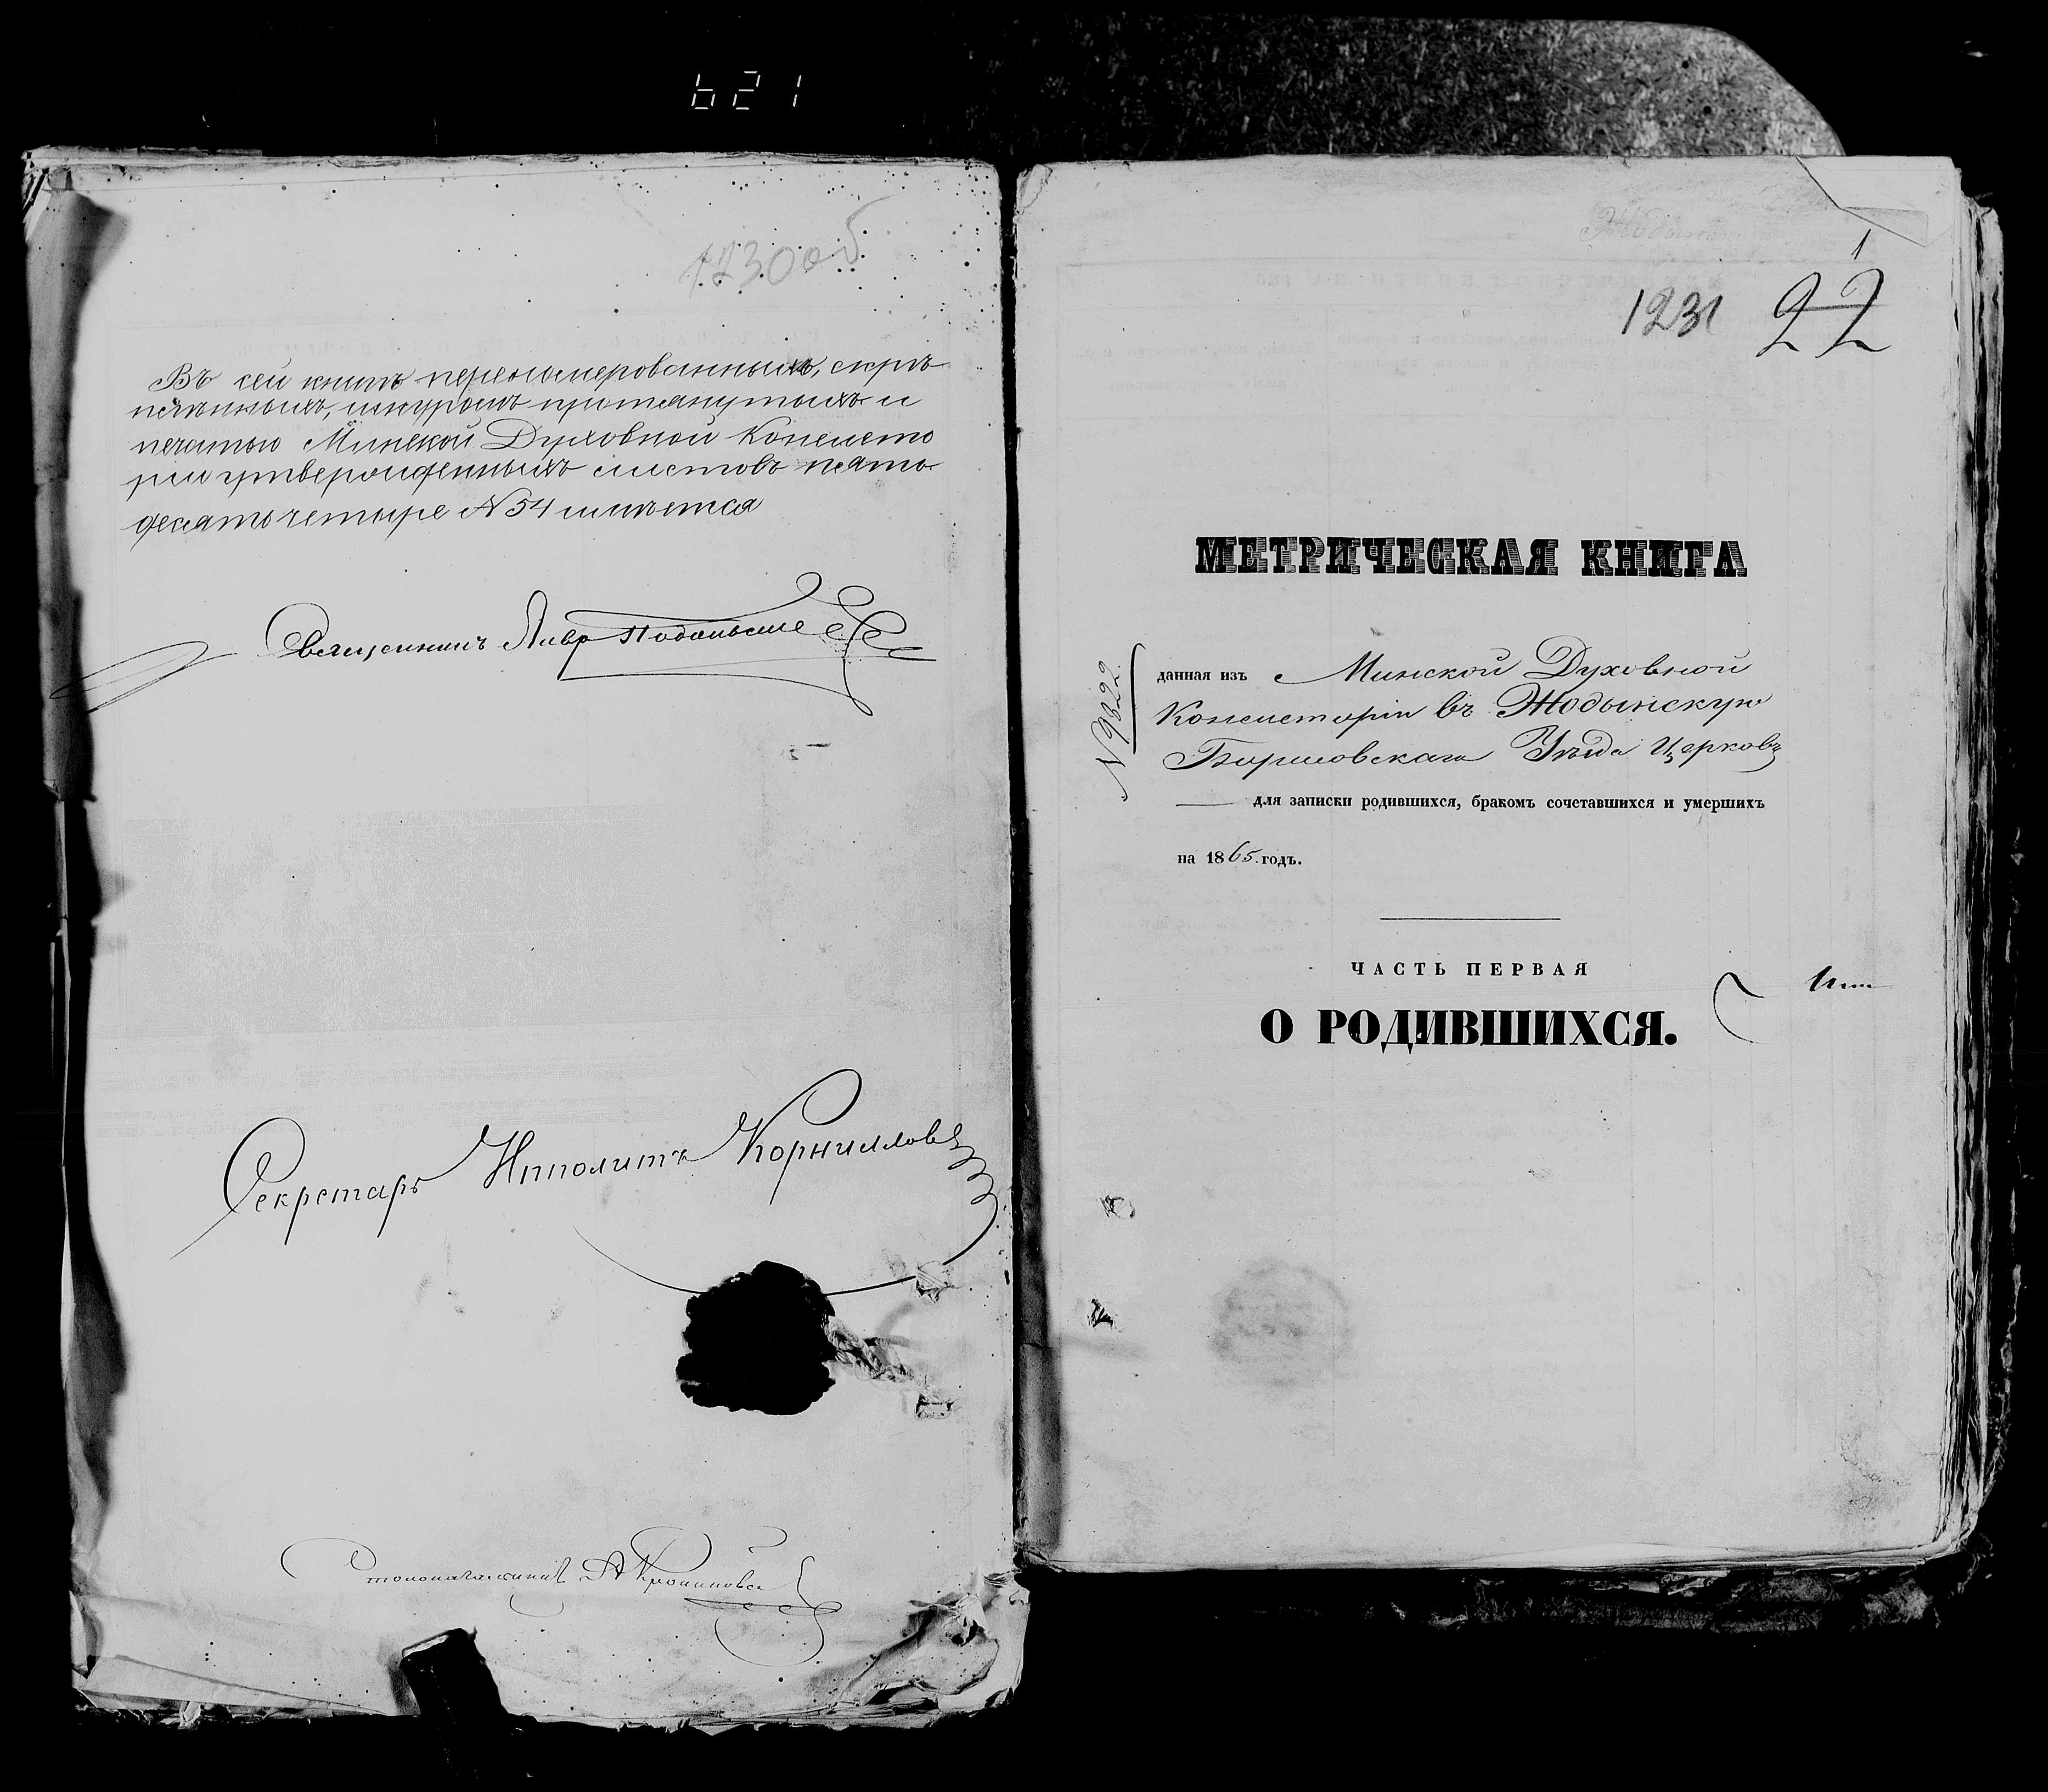 621
1230 об
Въ сей книгѣ перенумерованныхъ, скрѣ
пленныхъ, шнуромъ протянутыхъ и
печатью Минской Духовной Консисто
ріи утвержденныхъ листовъ пять
десятъ четыре N 54 имѣется
Священникъ
Секретарь Ипполитъ Корниловъ
Столоначальникъ
1
1231 22
МЕТРИЧЕСКАЯ КНИГА
N 9822
данная изъ Минской Духовной
Консисторіи въ Жодынскую
Борисовскаго Уѣзда Церковь
для записки родившихся, бракомъ сочетавшихся и умершихъ
на 1865 годъ.
ЧАСТЬ ПЕРВАЯ
О РОДИВШИХСЯ.